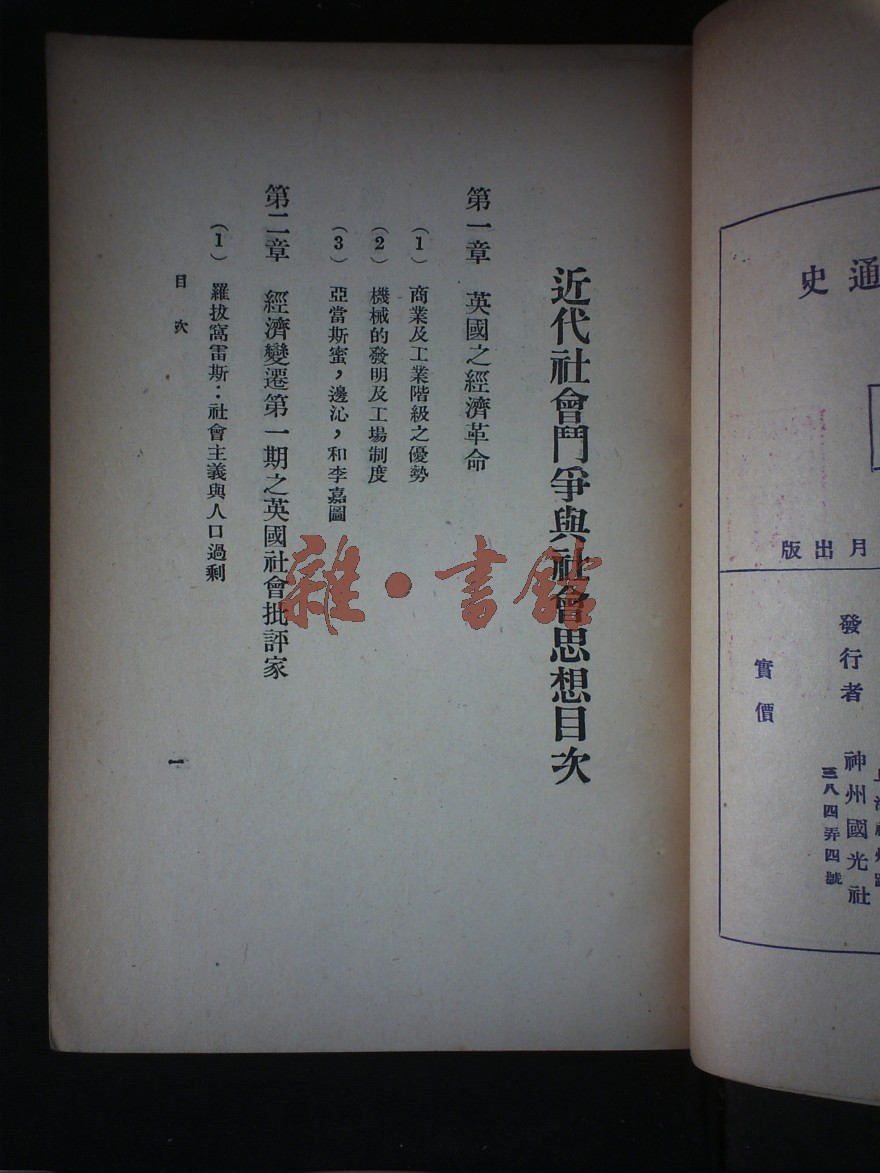 通史
月出版
發行者
神州國光社
三八四弄四號
實價
近代社會鬥爭與社會思想目次
第一章 英國之經濟革命
(1) 商業及工業階級之優勢
(2) 機械的發明及工場制度
(3) 亞當斯蜜，邊沁，和李嘉圖
第二章 經濟變遷第一期之英國社會批評家
(1) 羅拔窩雷斯：社會主義與人口過剩
目次
一
雜·書館